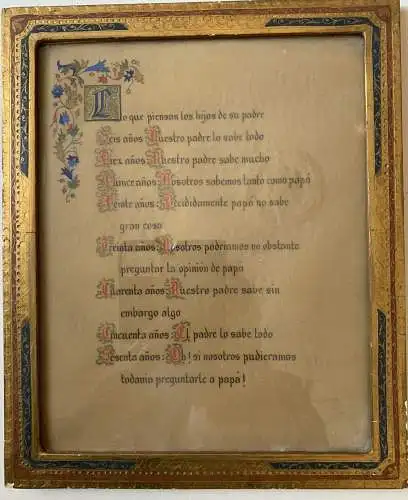 Lo que piensan los hijos de su padre
Seis años: Nuestro padre lo sabe todo
Diez años: Nuestro padre sabe mucho
Quince años: Nosotros sabemos tanto como papá
Veinte años: Decididamente papá no sabe
gran cosa
Treinta años: Nosotros podriamos no obstante
preguntar la opinión de papá
Cuarenta años: Nuestro padre save sin
embargo algo
Cincuenta años: El padre lo sabe todo
Sesenta años: Oh! si nosotros pudieramos
todavia preguntarle a papá!